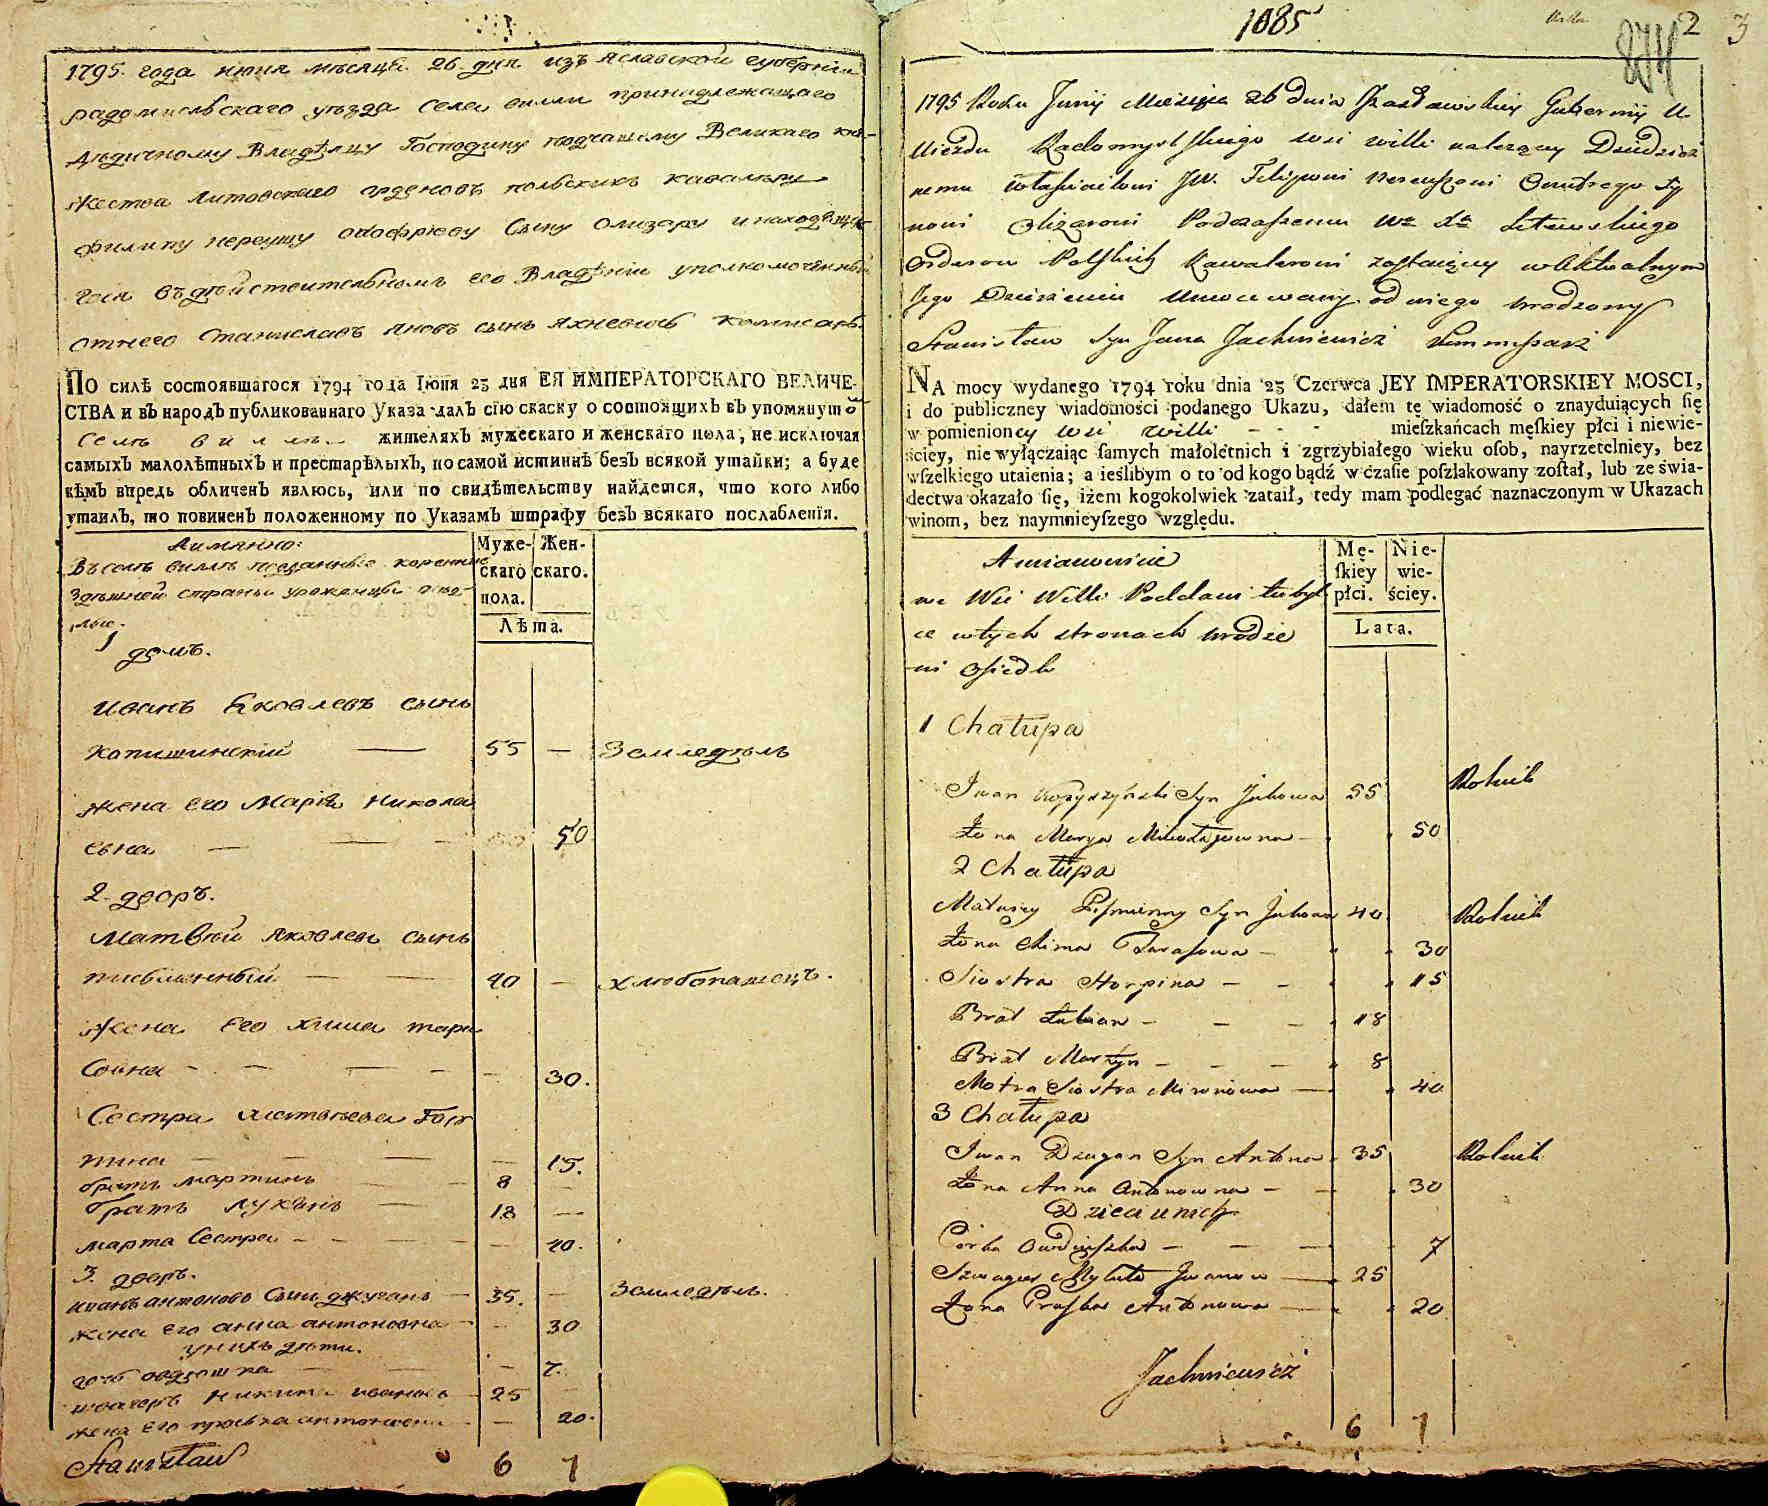 1795. года июня мѣсяца. 26. дня изъ яславской губернїи
радомысльскаго уѣзда села вилли принадлежащаго
дѣдичному Владѣлцу Господину подчашему Великаго кня-
жества литовскаго орденовъ польскихъ кавалѣру
филипу нереушу онофрїеву Сыну олизару и находяща-
гося въ дѣйствительномъ его Владѣнїи уполномоченный
отнего Станиславъ яновъ сынъ яхневичъ комисаръ.
ПО силѣ состоявшагося 1794 года Іюня 23 дня ЕЯ ИМПЕРАТОРСКАГО ВЕЛИЧЕ-
СТВА и въ народъ публикованнаго Указа далъ сїю скаску о состоящихъ въ упомянутой
Селѣ виллѣ жителяхъ мужескаго и женскаго пола, не исключая
самыхъ малолѣтныхъ и престарѣлыхъ, по самой истиннѣ безъ всякой утайки; а буде
кѣмъ впредь обличенъ явлюсь, или по свидѣтельству найдется, что кого либо
утаилъ, то повиненъ положенному по Указамъ штрафу безъ всякаго послабленїя.
Аимянно:
Въ селѣ виллѣ подданные коренные
здѣшней страны уроженцы осѣ-
лые.
Муже-
скаго
пола.
Жен-
скаго.
Лѣта.
1 домъ.
Иванъ Яковлевъ сынъ
Копишинскїй 55 — Земледѣлъ
жена его Марїя Никола
евна 50
2. дворъ.
Матвѣй яковлевъ сынъ
письменный 40 — хлюбопашецъ.
Жена его химна тара
совна 30.
Сестра матвѣева Гор
пина 15.
братъ мартинъ 8 —
братъ лукянъ 18 —
марта Сестра 40.
3. дворъ.
иванъ антоновъ Сынъ джуганъ 35. — Земледѣлъ.
жена его анна антоновна 30
у нихъ дѣти.
дочь овдюшка 7.
швагеръ никита ивановъ 25 —
жена его праська антоновна 20.
Stanisław 6 7
1085
2 3
874
1795 Roku Junij Miesiąca 26 dnia Jzasławskiey Gubernij U
Uiezdu Radomyslskiego wsi willi należącey Dziedzicz
nemu własicielowi JW. Filipowi Nereuszowi Onufrego Sy
nowi Olizarowi Podczaszemu Wo Xa Litewskiego
Orderow Polskich Kawalerowi zostaiącey w Aktualnym
Jego Dzierżeniu Umocowany od niego urodzony
Stanisław Syn Jana Jachniewicz Kommisarz
NA mocy wydanego 1794 roku dnia 23 Czerwca JEY IMPERATORSKIEY MOSCI,
i do publiczney wiadomości podanego Ukazu, dałem tę wiadomość o znayduiących ſię
w pomienioney wsi willi - - - mieſzkańcach męſkiey płci i niewie-
ściey, nie wyłączaiąc ſamych małoletnich i zgrzybiałego wieku osob, nayrzetelniey, bez
wſzelkiego utaienia; a ieślibym o to od kogo bądź w czaſie poſzlakowany został, lub ze świa-
dectwa okazało ſię, iżem kogokolwiek zataił, tedy mam podlegać naznaczonym w Ukazach
winom, bez naymnieyſzego względu.
Amianowicie
we Wsi Willi Poddani tubyl
ce w tych stronach urodze
ni osiedli
Mę-
ſkiey
płci.
Nie-
wie-
ściey.
Lata.
1 Chałupa
Iwan Kopyszyński Syn Jakowa 55 Rolnik
Żona Marya Mikołajowna 50
2 Chałupa
Matwiey Pismienny Syn Jakowa 40 Rolnik
Żona Chimna Tarasowa 30
Siostra Horpina 15
Brat Łukian 18
Brat Martyn 8
Motra Siostra Mironowa 40
3 Chałupa
Iwan Dzugan Syn Antona 35 Rolnik
Żona Anna Antonowna 30
Dzieci u nich
Córka Owdiuszka 7
Szwagier Mykita Iwanow 25
Żona Praska Antonowa 20
Jachniewicz
6 7